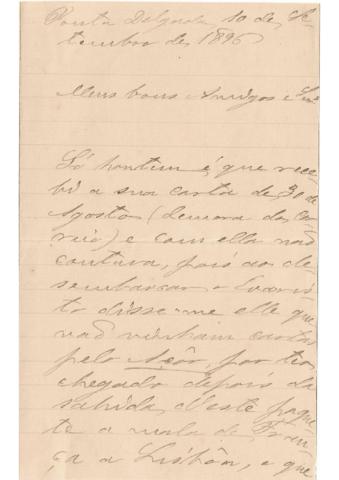 Ponta Delgada 10 de Se-
tembro de 1896
Meus bons Amigos e Snrs
Só hontem é que rece-
bi a sua carta de 30 de
Agosto (demora do cor-
reio) e com ella não
contava, pois ao de-
sembarcar o Evaris-
to disse-me elle que
não vinham cartas
pelo Açôr, por ter
chegado depois da
sahida d'este paque-
te a mala de Fran-
ça a Lisbôa, e que